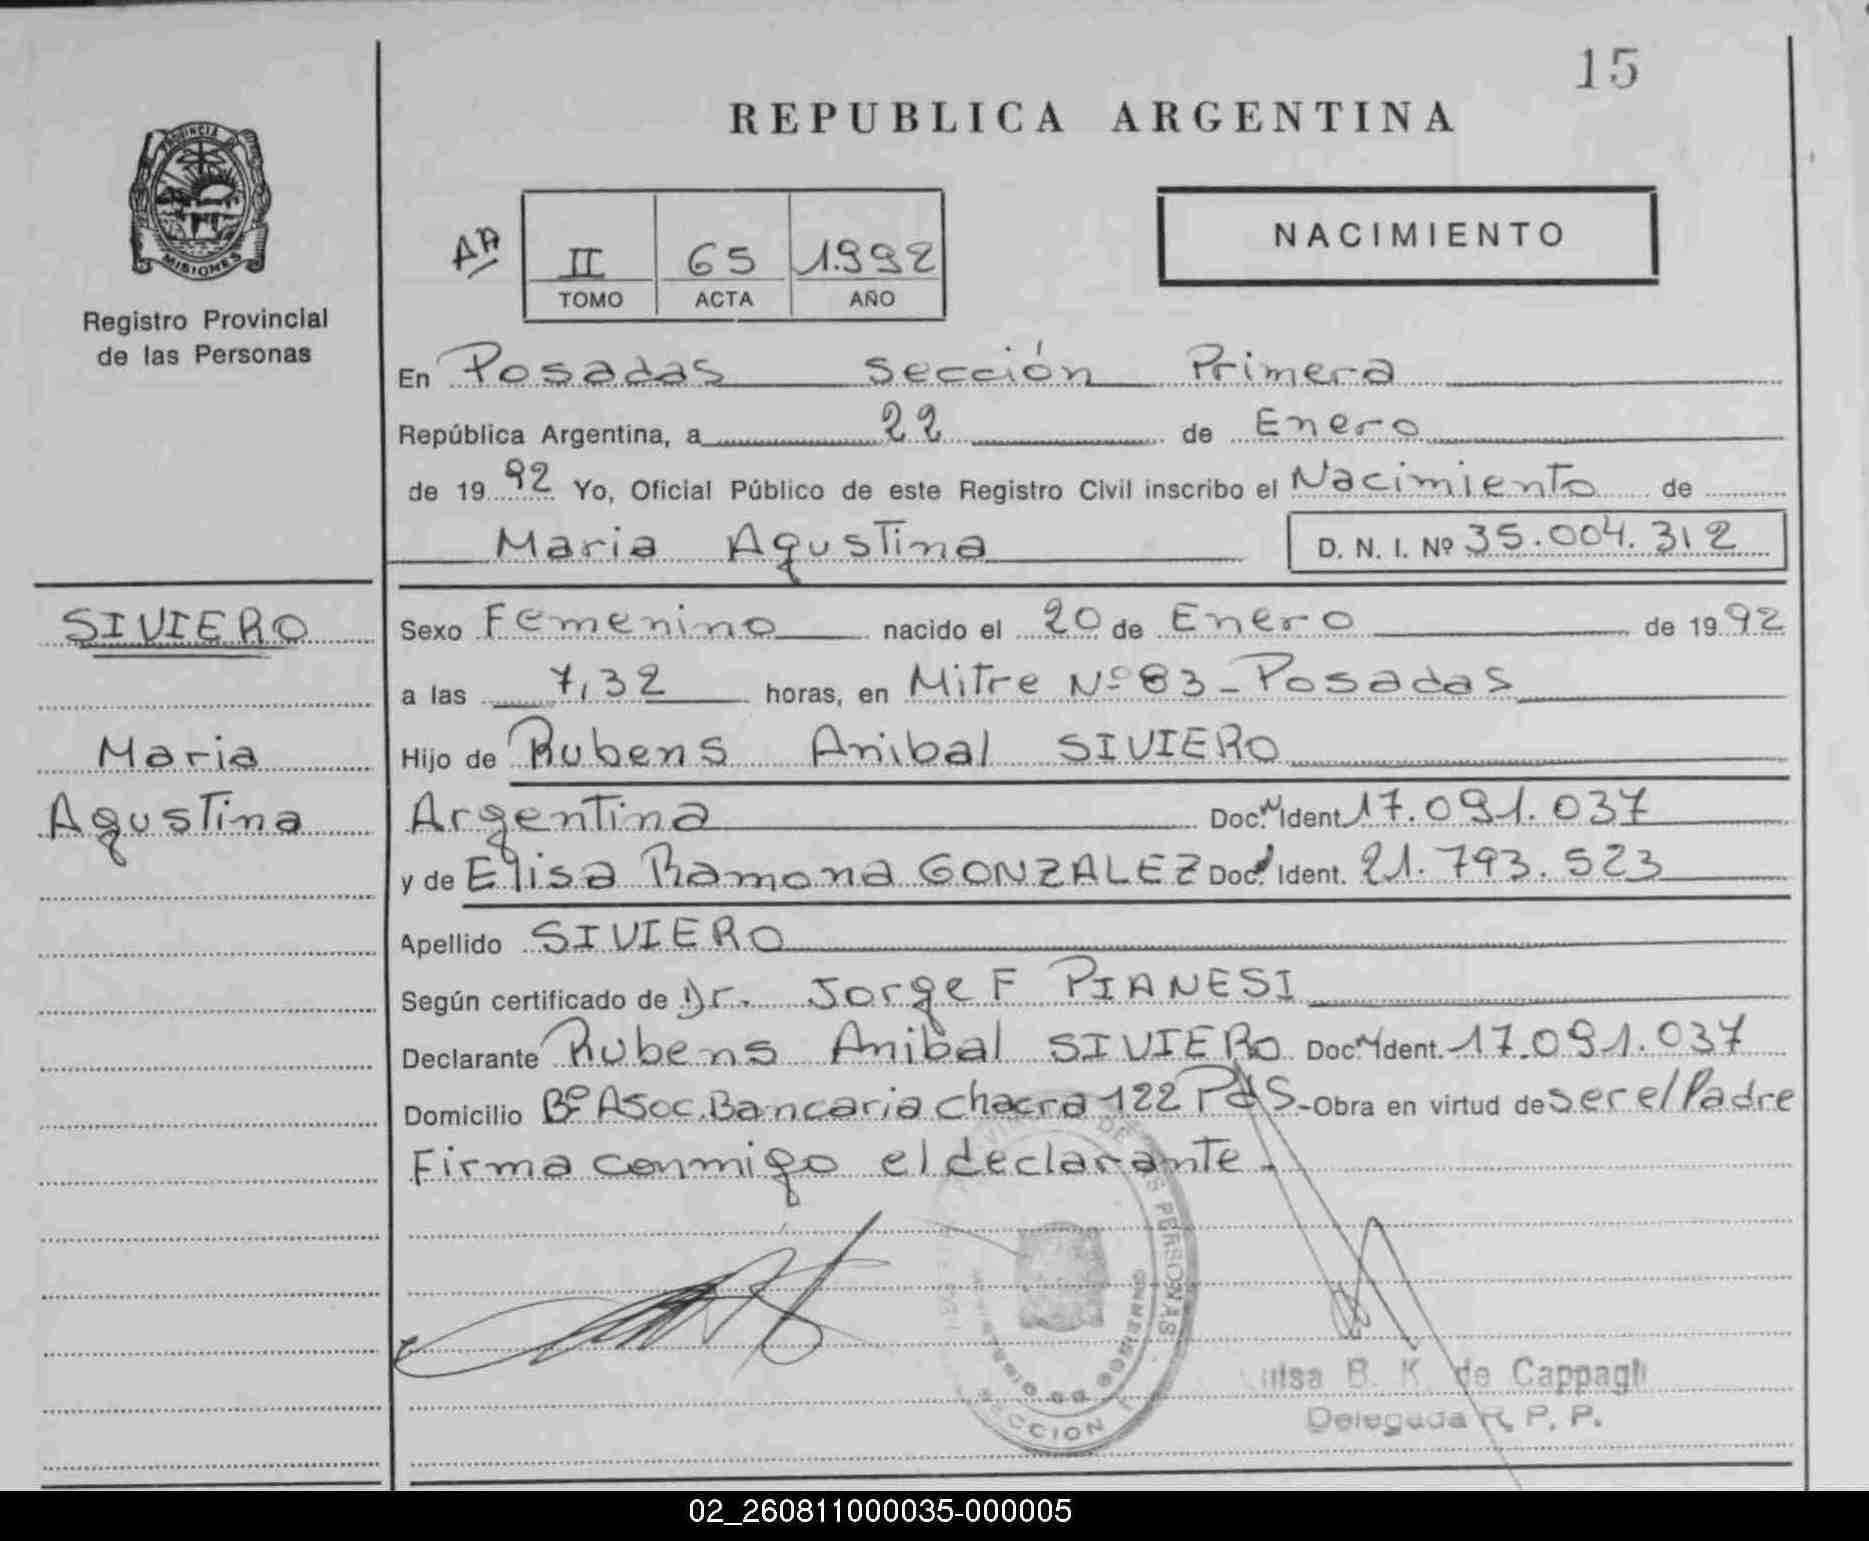 15
REPUBLICA ARGENTINA
PROVINCIA DE
MISIONES
Registro Provincial
de las Personas
AA
II 65 1.992
TOMO ACTA AÑO
NACIMIENTO
En Posadas sección Primera
República Argentina, a 22 de Enero
de 1992 Yo, Oficial Público de este Registro Civil inscribo el Nacimiento de
Maria Agustina D. N. I. Nº 35.004.312
SIVIERO
Maria
Agustina
Sexo Femenino nacido el 20 de Enero de 1992
a las 7,32 horas, en Mitre Nº 83 - Posadas
Hijo de Rubens Anibal SIVIERO
Argentina Doc. N Ident. 17.091.037
y de Elisa Ramona GONZALEZ Doc. Ident. 21.793.523
Apellido SIVIERO
Según certificado de Dr. Jorge F PIANESI
Declarante Rubens Anibal SIVIERO Doc. N Ident. 17.091.037
Domicilio Bº Asoc. Bancaria chacra 122 Pdas.- Obra en virtud de ser el Padre
Firma conmigo el declarante.
DE LAS PERSONAS
SECCION
B. K. de Cappagli
Delegada R. P. P.
02_260811000035-000005